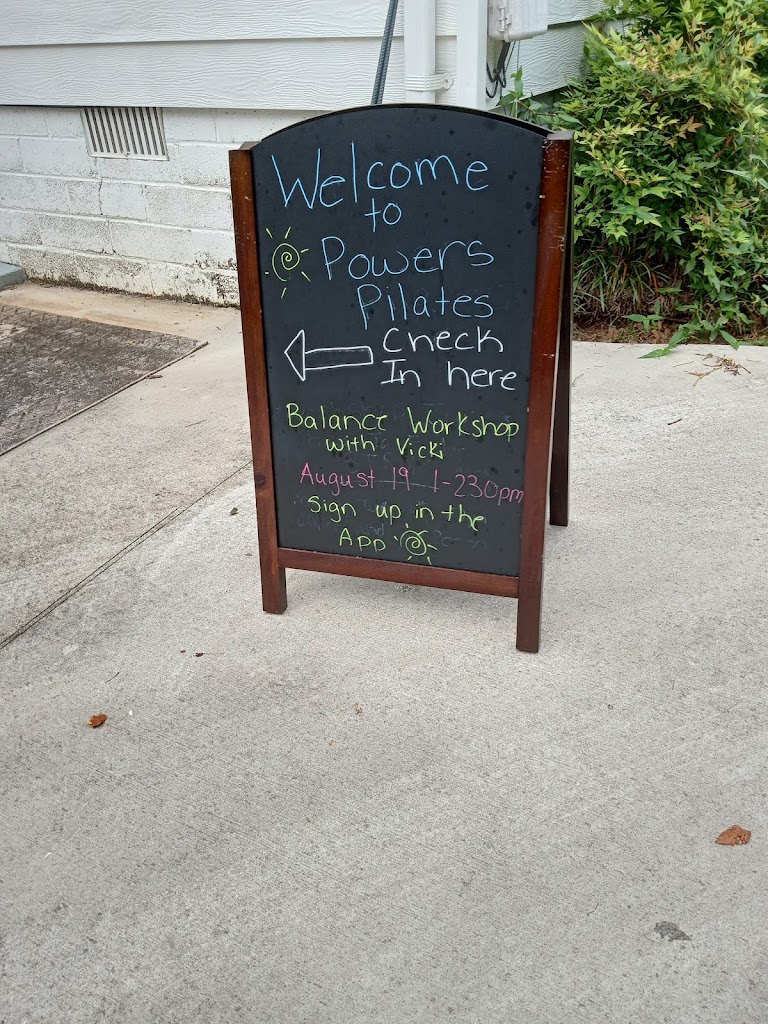 Welcome
to
Powers
Pilates
Check
In here
Balance Workshop
with Vicki
August 19 1-230pm
Sign up in the
App